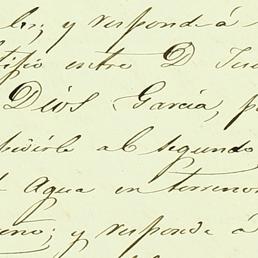 y responde á
entre D
Dios García,
al segundo
Agua en terreno
y responde á